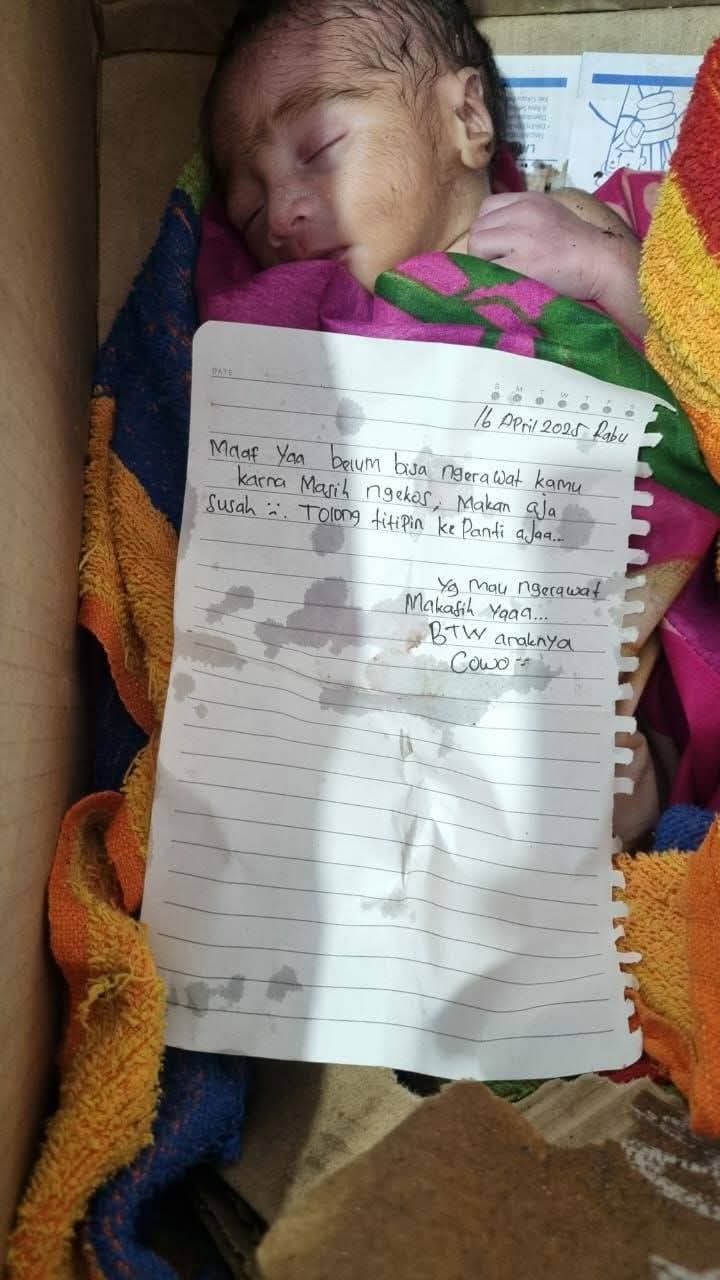 DATE
S M T W T F S
16 April 2025 Rabu
Maaf Yaa belum bisa ngerawat kamu
karna Masih ngekos, Makan aja
Susah :(. Tolong titipin ke Panti ajaa...
Yg mau ngerawat
Makasih Yaaa...
BTW anaknya
Cowo